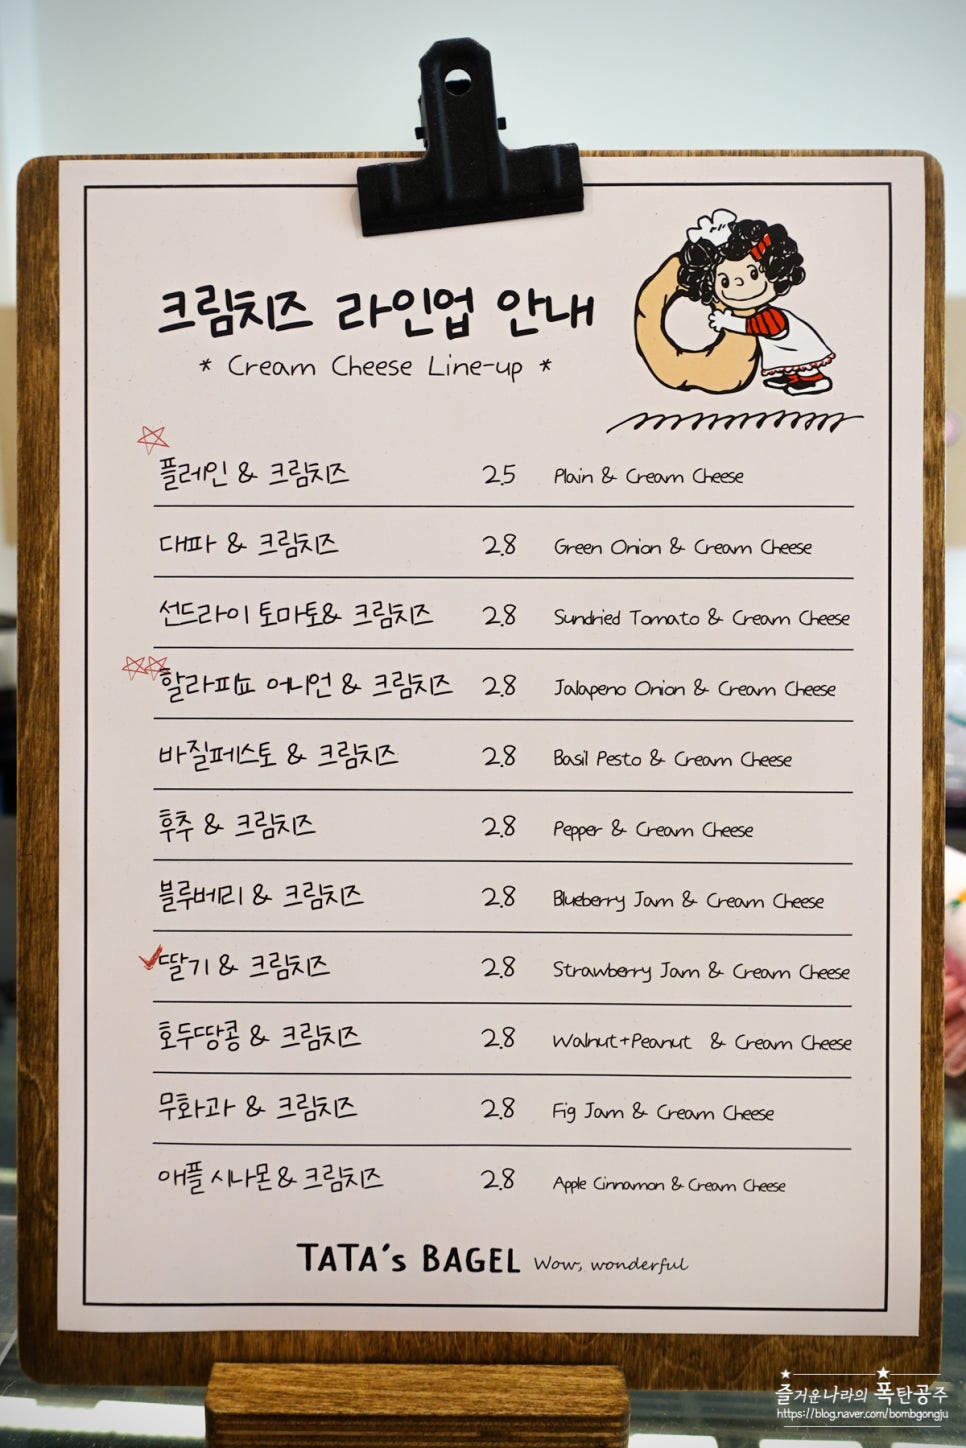 크림치즈 라인업 안내
* Cream Cheese Line-up *
플레인 & 크림치즈 2.5 Plain & Cream Cheese
대파 & 크림치즈 2.8 Green Onion & Cream Cheese
선드라이 토마토& 크림치즈 2.8 Sundried Tomato & Cream Cheese
할라피뇨 어니언 & 크림치즈 2.8 Jalapeno Onion & Cream Cheese
바질페스토 & 크림치즈 2.8 Basil Pesto & Cream Cheese
후추 & 크림치즈 2.8 Pepper & Cream Cheese
블루베리 & 크림치즈 2.8 Blueberry Jam & Cream Cheese
딸기 & 크림치즈 2.8 Strawberry Jam & Cream Cheese
호두땅콩 & 크림치즈 2.8 Walnut+Peanut & Cream Cheese
무화과 & 크림치즈 2.8 Fig Jam & Cream Cheese
애플 시나몬 & 크림치즈 2.8 Apple Cinnamon & Cream Cheese
TATA's BAGEL Wow, wonderful
즐거운나라의 폭탄공주
https://blog.naver.com/bombgongju